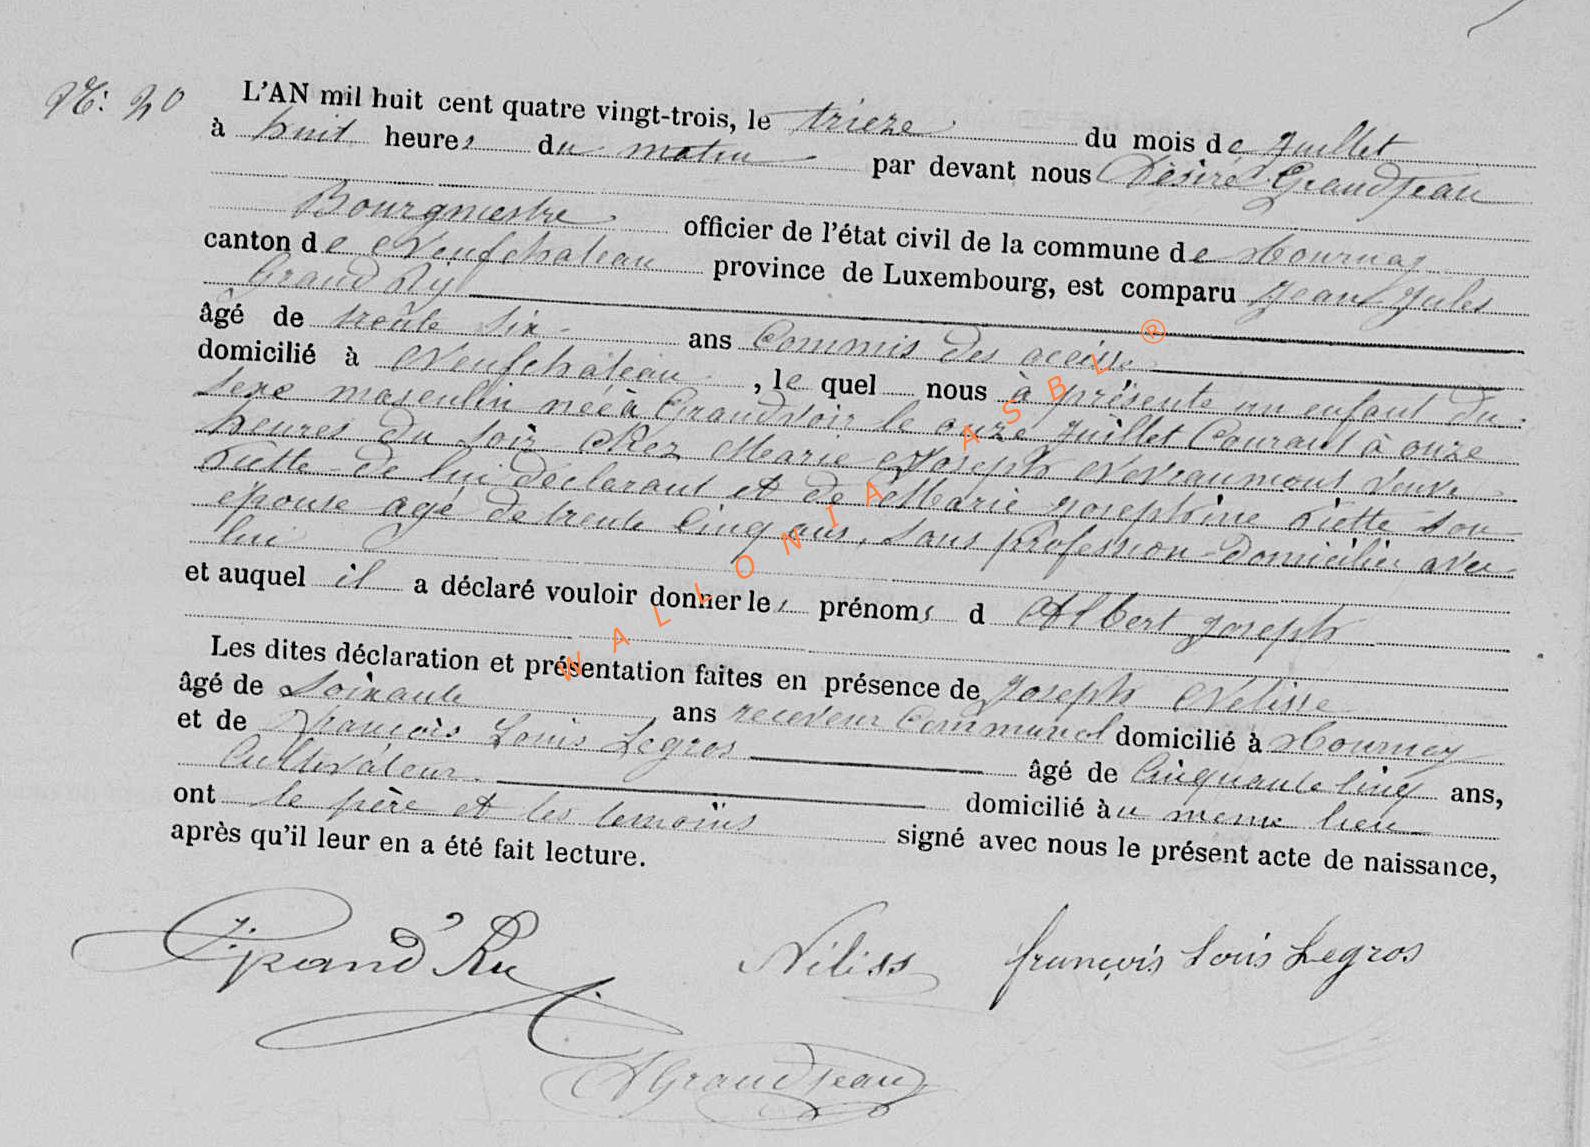 N: 20
L'AN mil huit cent quatre vingt-trois, le trieze du mois de Juillet
à huit heures du matin par devant nous Désiré Grandjean
Bourgmestre officier de l'état civil de la commune de Tournay
canton de Neufchateau province de Luxembourg, est comparu Jean Jules
Grand Ry
âgé de trente six ans Commis des accises
domicilié à Neufchateau, le quel nous à présenté un enfant du
sexe masculin né à Grandvoir le onze Juillet Courant à onze
heures du soir chez Marie Joseph Nevraumont veuve
Liette de lui déclarant et de Marie Josephine Liette son
épouse agé de trente cinq ans, sans profession Domicilié avec
lui
et auquel il a déclaré vouloir donner les prénoms d Albert Joseph
Les dites déclaration et présentation faites en présence de Joseph Nelisse
âgé de Soixante ans receveur Communal domicilié à Tournay
et de François Louis Legros
Cultivateur âgé de Cinquante cinq ans,
domicilié àu meme lieu
ont le père et les temoins signé avec nous le présent acte de naissance,
après qu'il leur en a été fait lecture.
Grand'Ry Niliss françois Louis Legros
D Grandjean
WALLONIA ASBL ®